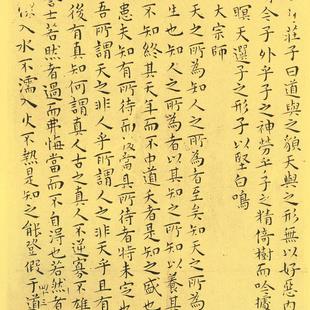 莊子曰道與之貌天與之形無以好惡內
今子外乎子之神勞乎子之精倚樹而吟據
瞑天選子之形子以堅白鳴
大宗師
天之所為知人之所為者至矣知天之所
生也知人之所為者以其知之所知以養其
不知終其天年而不中道夭者是知之盛也
患夫知有所待而後當其所待者特未定也
吾所謂天之非人乎所謂人之非天乎且有
後有真知何謂真人古之真人不逆寡不雄
士若然者過而弗悔當而不自得也若然者
入水不濡入火不熱是知之能登假于道